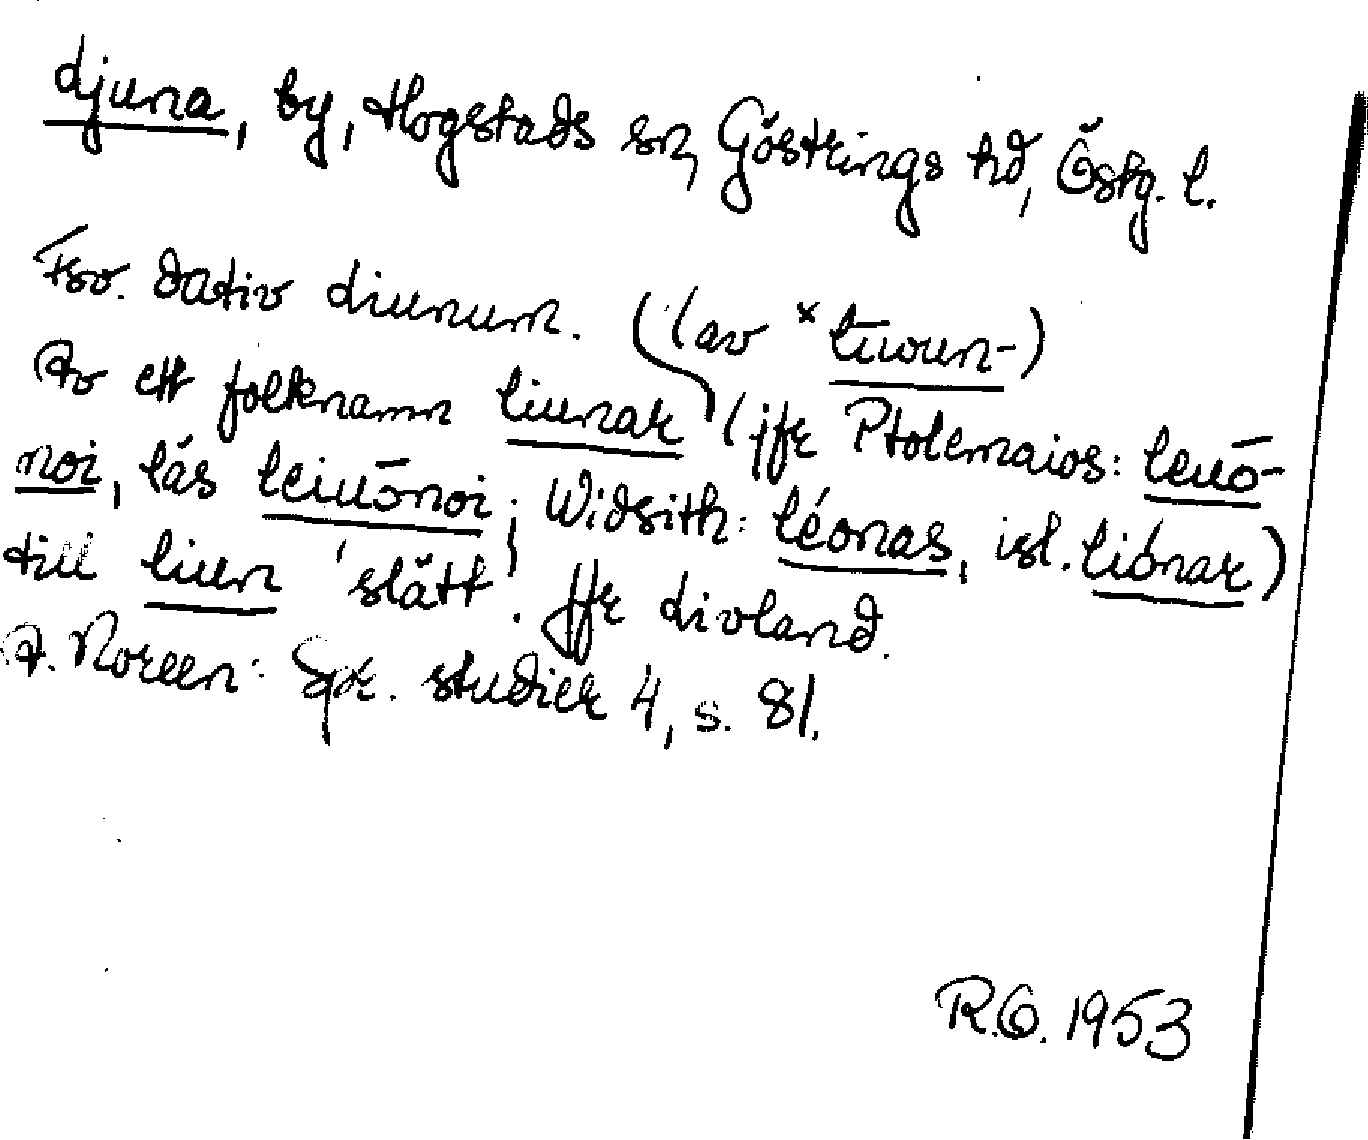 Ljuna, by, Hogstads sn, Göstrings hd, Östg. l.
Fsv. dativ Liunum. ((av *Liwun-)
Av ett folknamn Liunar (jfr Ptolemaios: Leuō-
noi, läs Leiuōnoi; Widsith: Léonas, isl. Liónar)
till liun 'slätt'. Jfr Livland.
A. Noreen: Spr. studier 4, s. 81.
R.O. 1953